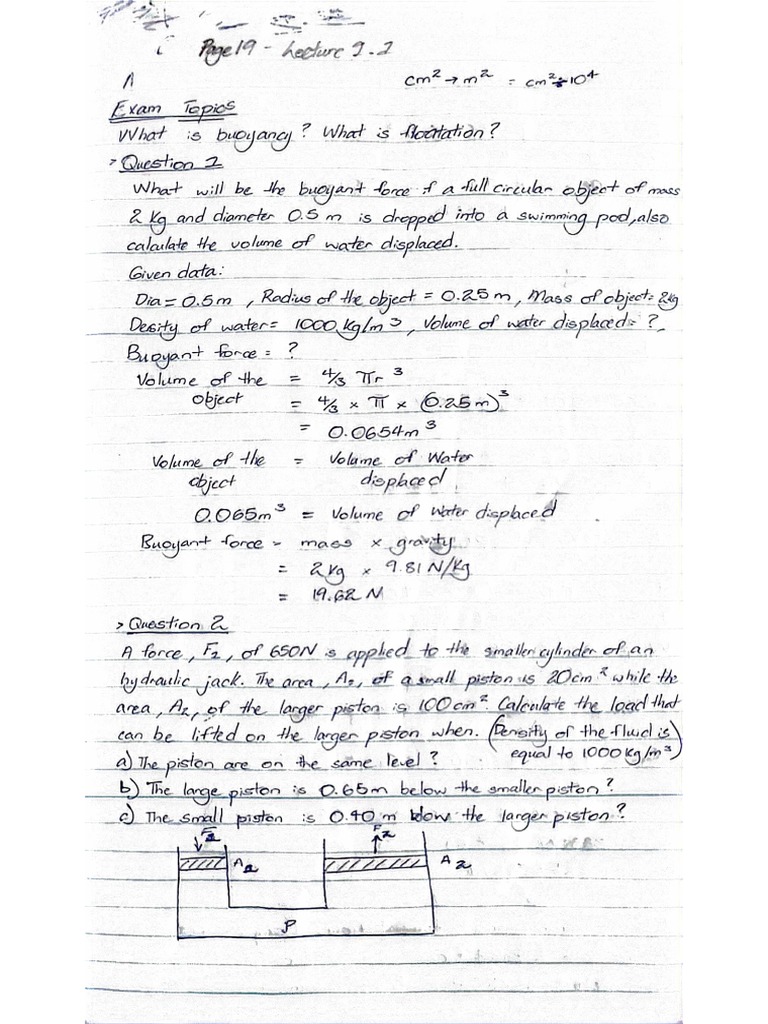 Page 19 - Lecture 9.2
A cm² → m² = cm² ÷ 10⁴
Exam Topics
What is buoyancy? What is floatation?
> Question 1
What will be the buoyant force if a full circular object of mass
2 kg and diameter 0.5 m is dropped into a swimming pool, also
calculate the volume of water displaced.
Given data:
Dia = 0.5m, Radius of the object = 0.25m, Mass of object = 2kg
Desity of water = 1000 kg/m³, Volume of water displaced = ?
Buoyant force = ?
Volume of the = 4/3 πr³
object = 4/3 × π × (0.25m)³
= 0.0654m³
Volume of the = Volume of Water
object displaced
0.065m³ = Volume of Water displaced
Buoyant force = mass × gravity
= 2kg × 9.81 N/kg
= 19.62 N
> Question 2
A force, F₂, of 650N is applied to the smaller cylinder of an
hydraulic jack. The area, A₂, of a small piston is 20cm² while the
area, A₂, of the larger piston is 100cm². Calculate the load that
can be lifted on the larger piston when. (Density of the fluid is
equal to 1000 kg/m³)
a) The piston are on the same level?
b) The large piston is 0.65m below the smaller piston?
c) The small piston is 0.40 m below the larger piston?
F₂ F₂
A₂ A₂
P